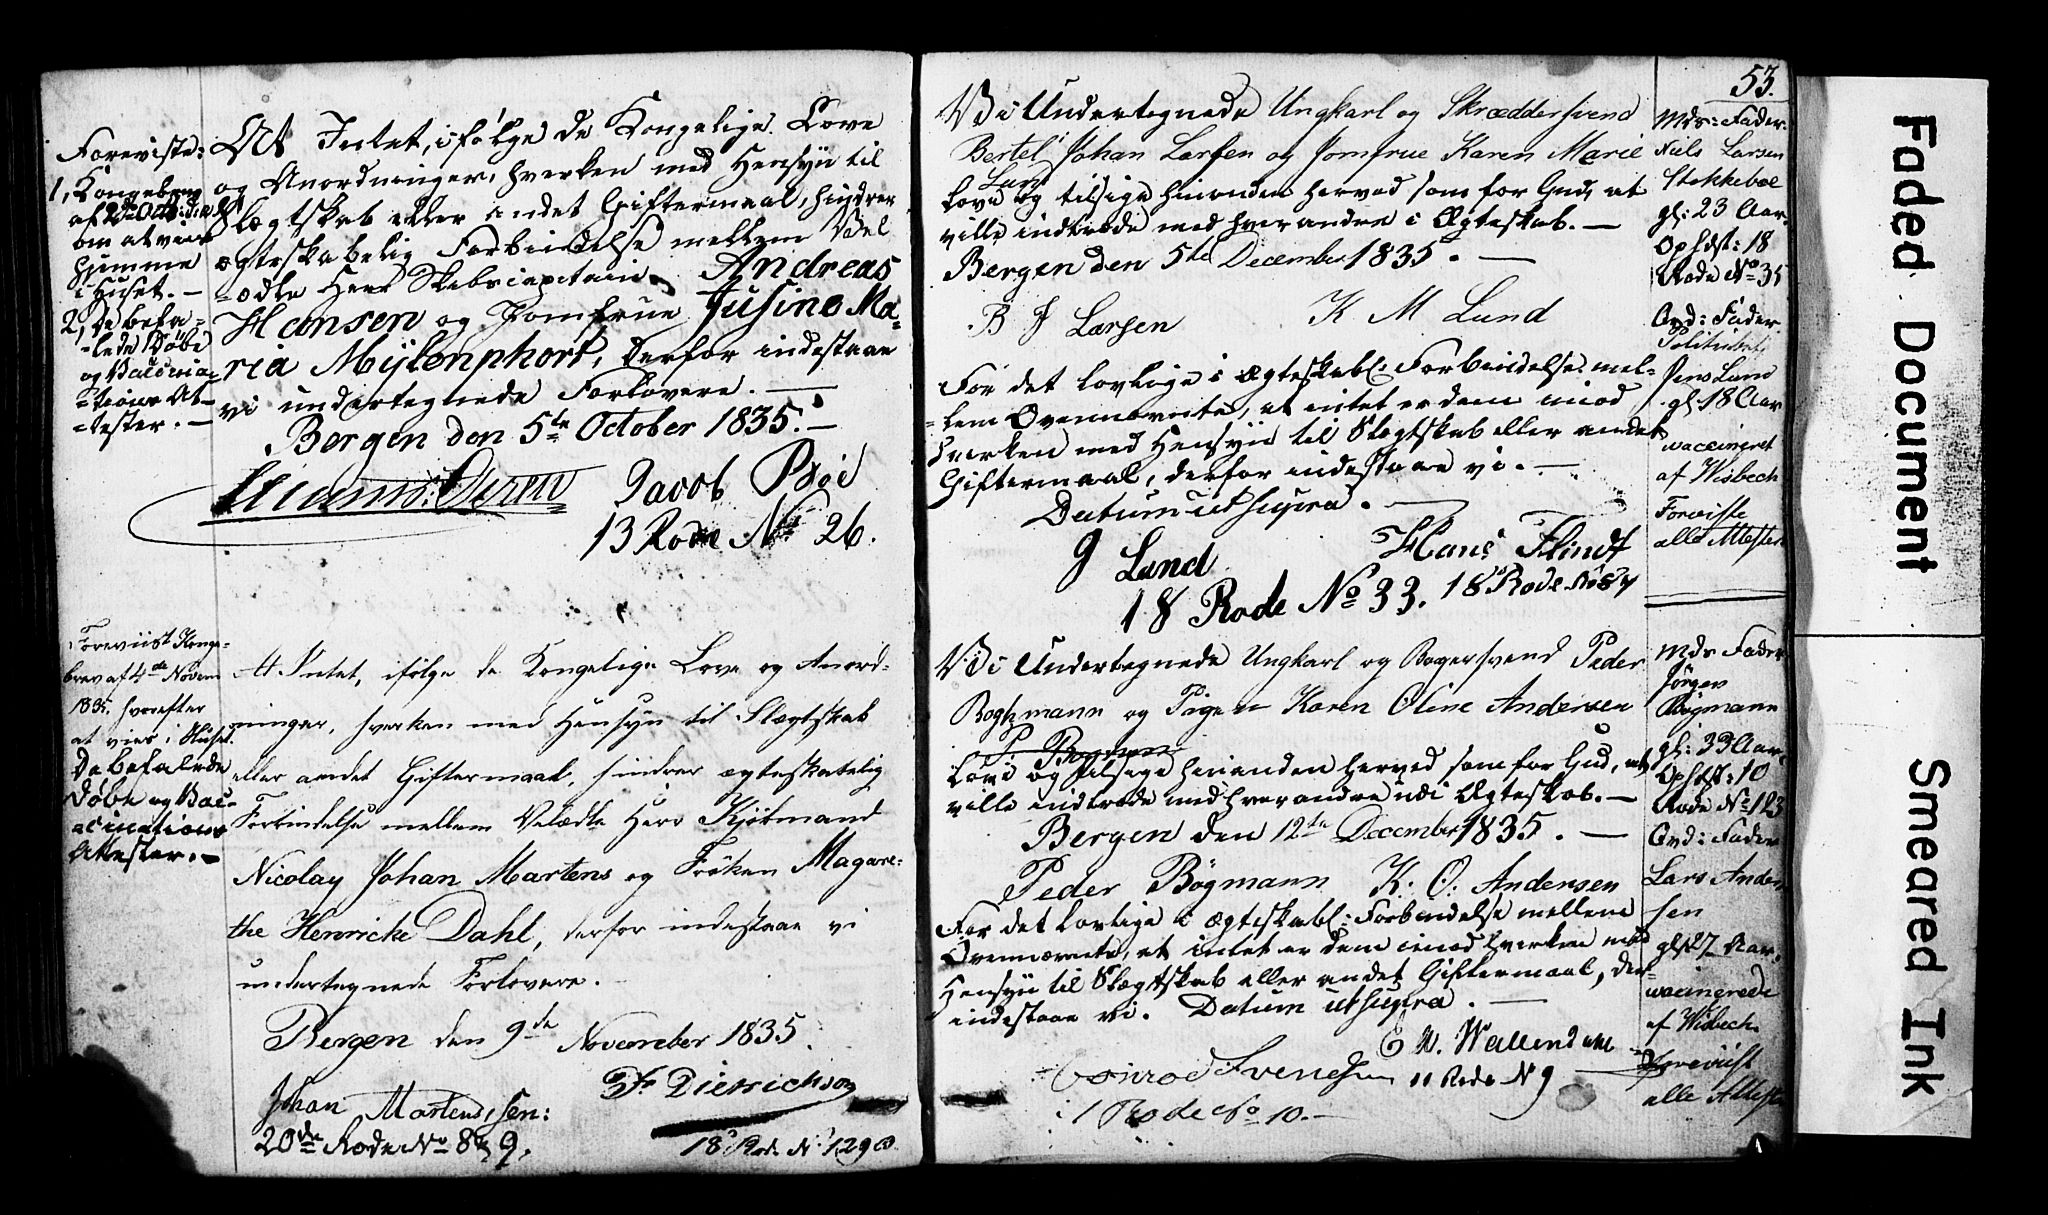 Foreviste:
1, Kongebrev
om at vies
hjemme
i Huset. —
2, de befa-
-lede Døbe
og Vaccina-
-tions At-
-tester. —
At Intet, ifølge de Kongelige Love
og Anordninger, hverken med Hensyn til
Slægtskab eller andet Giftermaal, hindrer
ægteskabelig Forbindelse mellem Vel
-ædle Herr Skibscapitain Andreas
Hansen og Jomfrue Jusine Ma-
ria Mylenphort, derfor indestaae
vi undertegnede Forlovere. —
Bergen den 5te October 1835. —
Jacob Bøe
13 Rode No 26.
Foreviist Konge-
brev af 4de Novem
1835. hvorefter
at vies i Huset.
De befalede
Døbe og Vac-
-cinations
Attester. —
At Intet, ifølge de Kongelige Love og Anord-
ninger, hverken med Hensyn til Slægtskab
eller andet Giftermaal, hindrer ægteskabelig
Forbindelse mellem Velædle Herr Kjøbmand
Nicolay Johan Martens og Frøken Magare-
the Henricke Dahl, derfor indestaae vi
undertegnede Forlovere.
Bergen den 9de November 1835.
Johan Martens, sen:
20de Rode No 8 & 9.
Fr Dietrichson
18 Rode No 129
53.
Vi Undertegnede Ungkarl og Skræddersvend
Bertel Johan Larsen og Jomfrue Karen Marie
Lund
love og tilsige hinanden herved som for Gud, at
ville indtræde med hverandre i Ægteskab. —
Bergen den 5te December 1835. —
B J Larsen
K M Lund
For det lovlige i ægteskabl: Forbindelse mel-
-lem Ovennævnte, at intet er dem imod
hverken med Hensyn til Slægtskab eller andet
Giftermaal, derfor indestaae vi. —
Datum ut supra. —
J Lund
18 Rode No 33.
Hans Flindt
18 Rode
Mds: Fader:
Niels Larsen
Stokkebøe
gl: 23 Aar.
Ophdst: 18
Rode No 35
Brd: Fader.
Politibetj
Jens Lund
gl: 18 Aar
vaccineret
af Wisbech
Foreviste
alle Attester
Vi Undertegnede Ungkarl og Bagersvend Peder
Boghmann og Pigen Karen Oline Andersen
P. Bogmann
love og tilsige hinanden herved som for Gud, at
ville indtræde med hverandre udi Ægteskab. —
Bergen den 12te December 1835. —
Peder Bögmann
K. O: Andersen
For det lovlige i ægteskabl: Forbindelse mellem
Ovennævnte, at intet er dem imod hverken med
Hensyn til Slægtskab eller andet Giftermaal, der-
indestaae vi. Datum ut supra. —
Conrad Svendsen
1 Rode No 10. —
E W. Wallendahl
11 Rode N 9
Mds Fader
Jørgen
Bøgmann
gl: 33 Aar.
Ophdst: 10
Rode No 123
Brd: Fader
Lars Ander
sen
gl: 27 Aar.
vaccinerede
af Wisbech.
Foreviist
alle Atteste
Faded Document
Smeared Ink